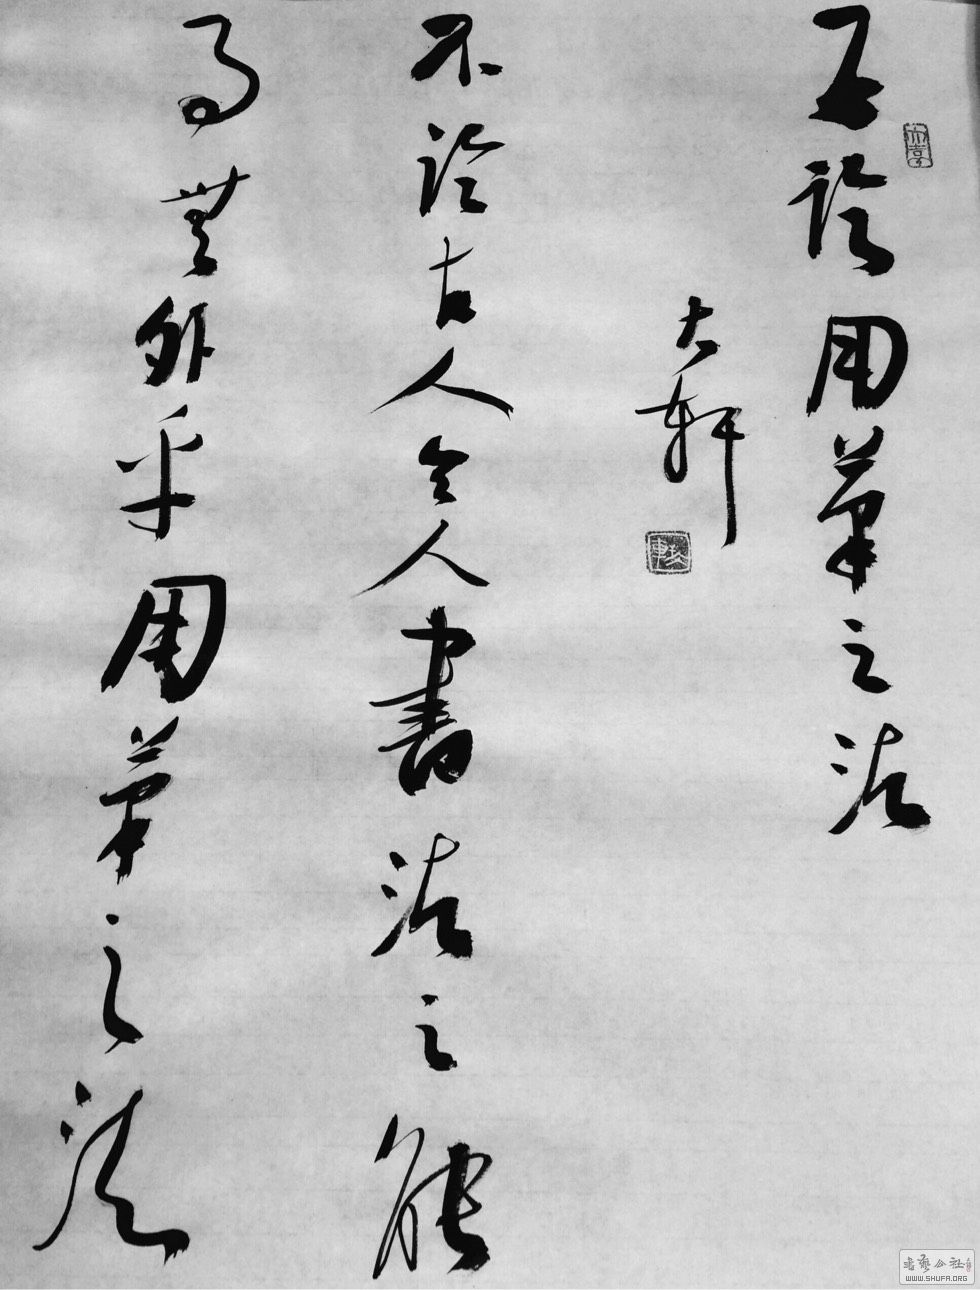 論用筆之法
大軒
不論古人今人書法之能
事無外乎用筆之法
书艺公社
WWW.SHUFA.ORG